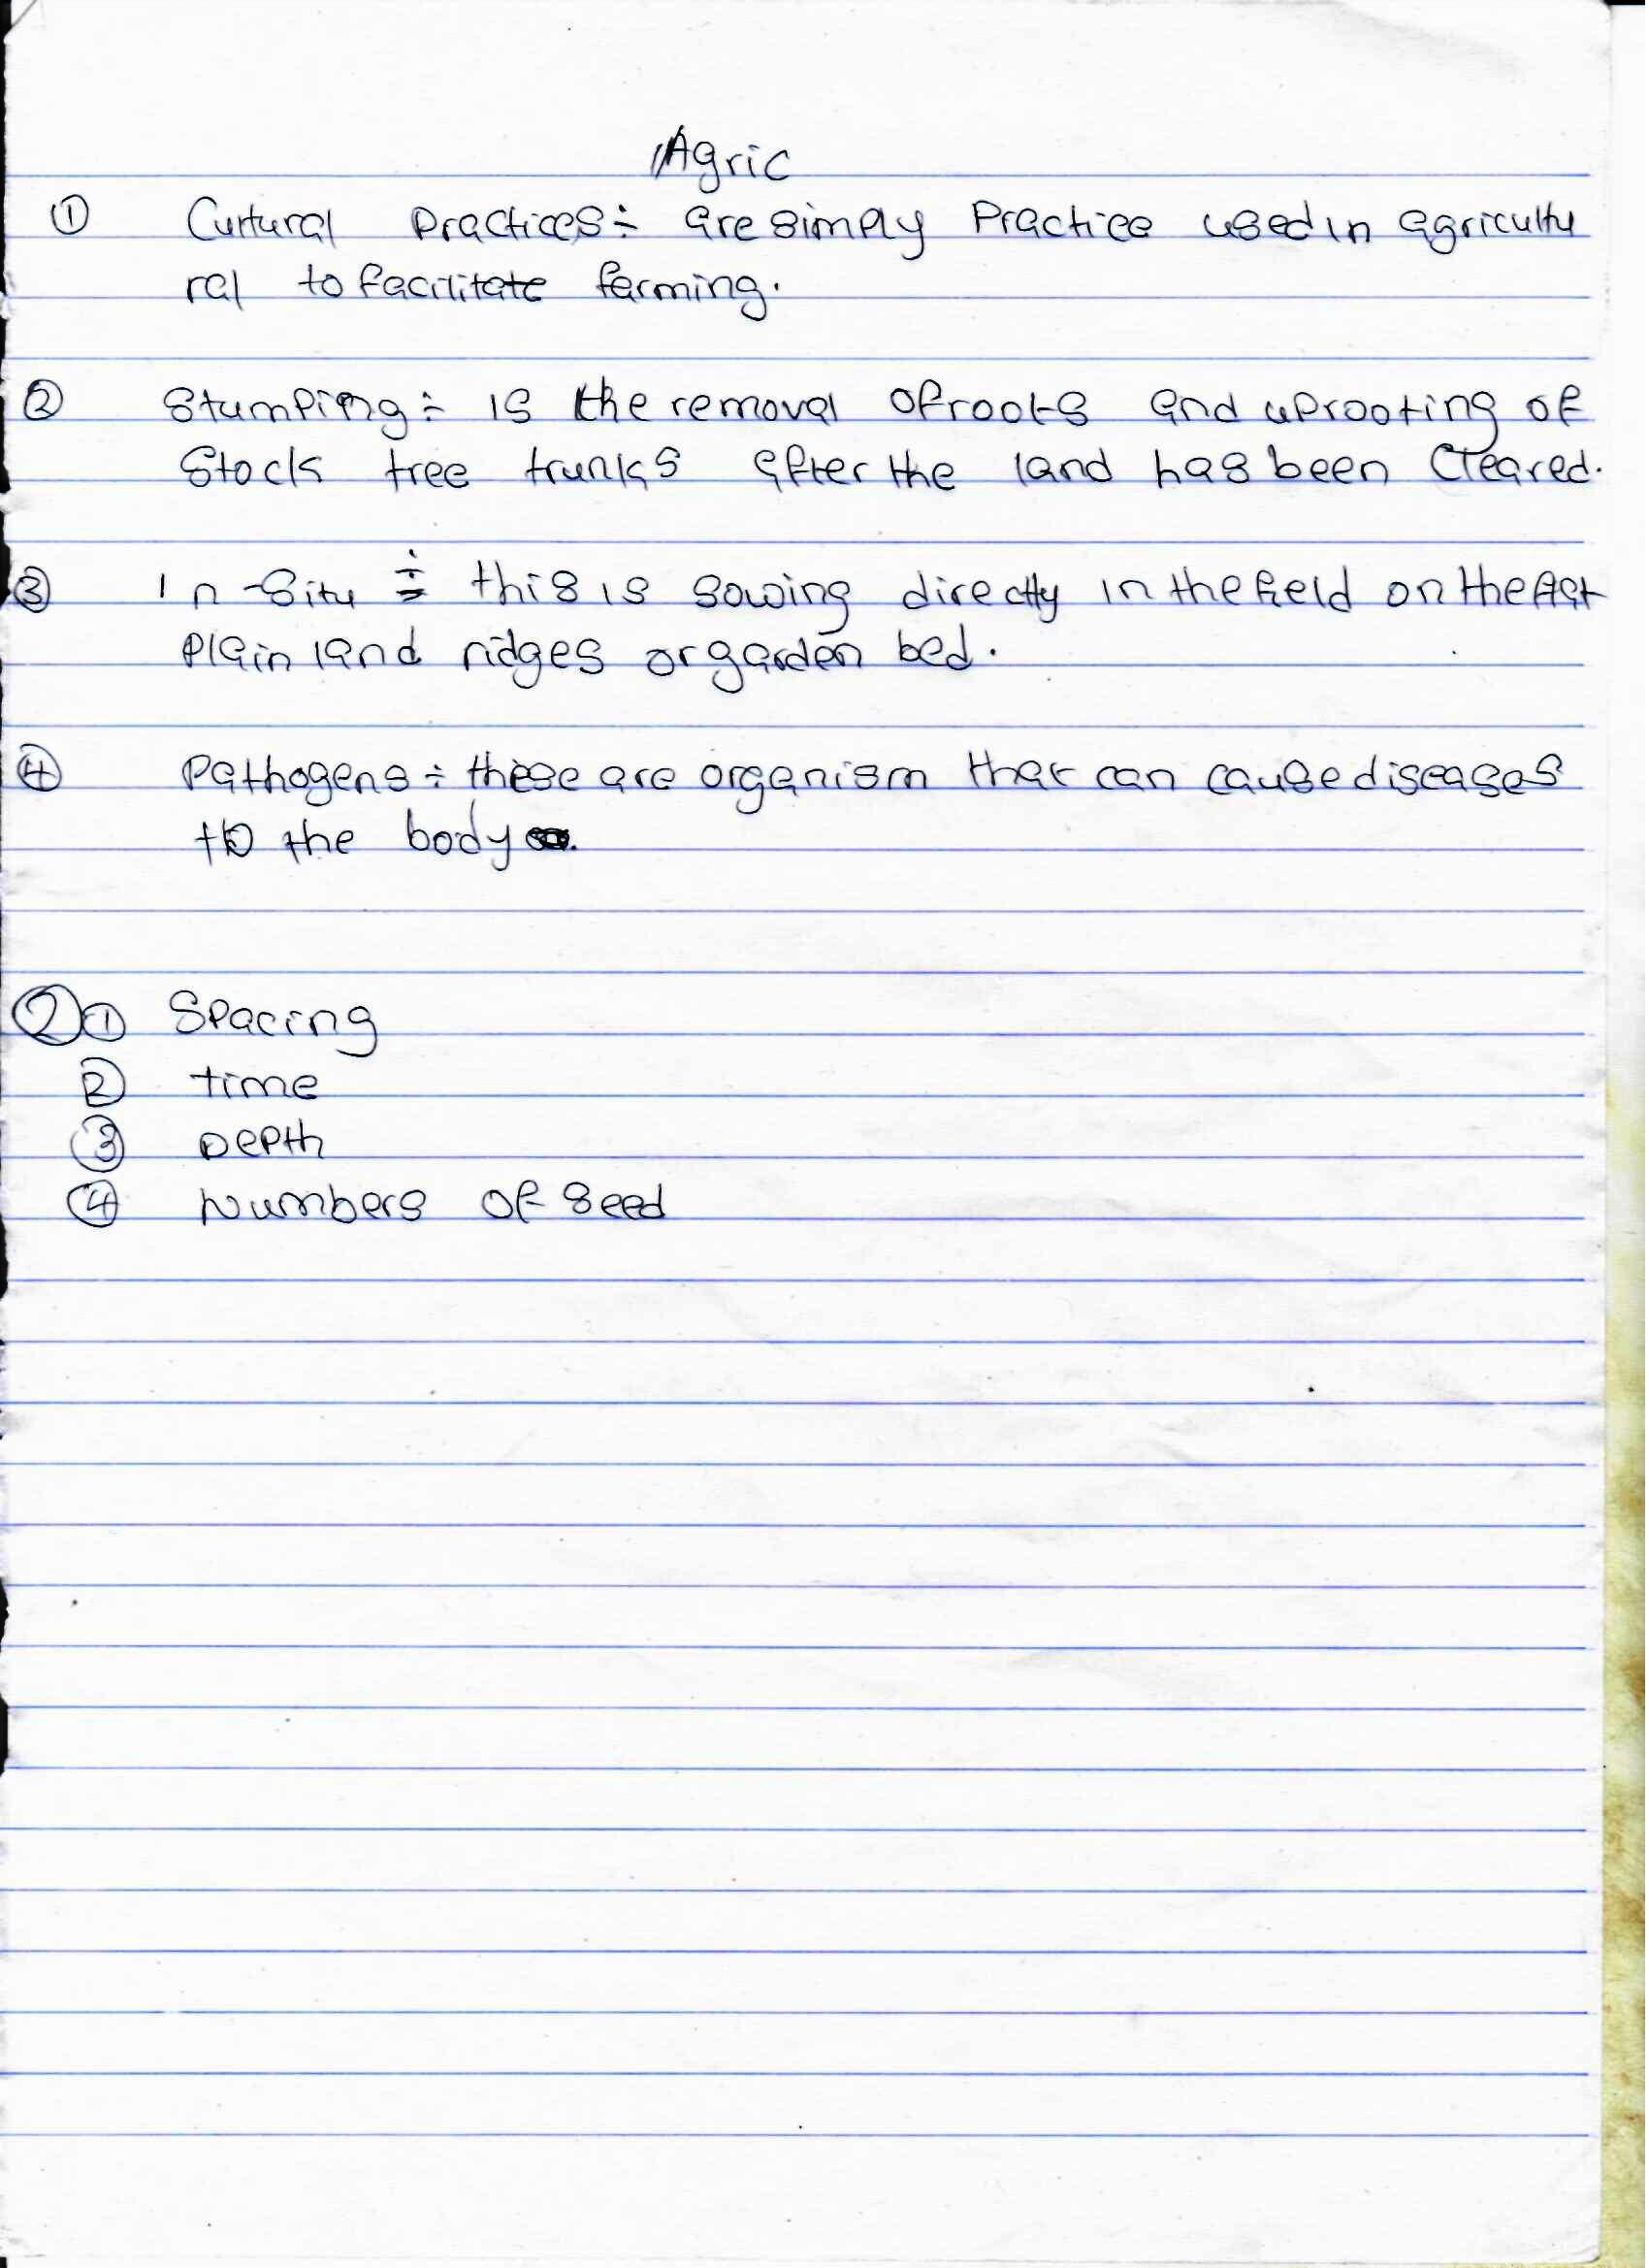 Agric
① Curtural Practices ÷ are simply Practice used in agricultu
ral to facilitate farming.
② Stumping ÷ is the removal of roots and uprooting of
Stock tree trunks after the land has been Cleared.
③ In-Situ ÷ this is sowing directly in the field on the flat
plain land ridges or garden bed.
④ Pathogens ÷ these are organism that can cause diseases
to the body.
② ① Spacing
② time
③ Depth
④ Numbers of Seed